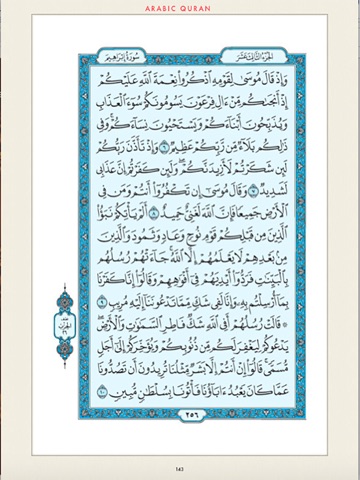 ARABIC QURAN
سُورَةُ إِبْرَاهِيمَ الجُزْءُ الثَّالِثَ عَشَرَ
وَإِذْ قَالَ مُوسَىٰ لِقَوْمِهِ ٱذْكُرُوا۟ نِعْمَةَ ٱللَّهِ عَلَيْكُمْ
إِذْ أَنجَىٰكُم مِّنْ ءَالِ فِرْعَوْنَ يَسُومُونَكُمْ سُوٓءَ ٱلْعَذَابِ
وَيُذَبِّحُونَ أَبْنَآءَكُمْ وَيَسْتَحْيُونَ نِسَآءَكُمْ وَفِى
ذَٰلِكُم بَلَآءٌ مِّن رَّبِّكُمْ عَظِيمٌ ٦ وَإِذْ تَأَذَّنَ رَبُّكُمْ
لَئِن شَكَرْتُمْ لَأَزِيدَنَّكُمْ وَلَئِن كَفَرْتُمْ إِنَّ عَذَابِى
لَشَدِيدٌ ٧ وَقَالَ مُوسَىٰٓ إِن تَكْفُرُوٓا۟ أَنتُمْ وَمَن فِى
ٱلْأَرْضِ جَمِيعًا فَإِنَّ ٱللَّهَ لَغَنِىٌّ حَمِيدٌ ٨ أَلَمْ يَأْتِكُمْ نَبَؤُا۟
ٱلَّذِينَ مِن قَبْلِكُمْ قَوْمِ نُوحٍ وَعَادٍ وَثَمُودَ وَٱلَّذِينَ
مِنۢ بَعْدِهِمْ لَا يَعْلَمُهُمْ إِلَّا ٱللَّهُ جَآءَتْهُمْ رُسُلُهُم
بِٱلْبَيِّنَٰتِ فَرَدُّوٓا۟ أَيْدِيَهُمْ فِىٓ أَفْوَٰهِهِمْ وَقَالُوٓا۟ إِنَّا كَفَرْنَا
بِمَآ أُرْسِلْتُم بِهِۦ وَإِنَّا لَفِى شَكٍّ مِّمَّا تَدْعُونَنَآ إِلَيْهِ مُرِيبٍ ٩
۞ قَالَتْ رُسُلُهُمْ أَفِى ٱللَّهِ شَكٌّ فَاطِرِ ٱلسَّمَٰوَٰتِ وَٱلْأَرْضِ
يَدْعُوكُمْ لِيَغْفِرَ لَكُم مِّن ذُنُوبِكُمْ وَيُؤَخِّرَكُمْ إِلَىٰٓ أَجَلٍ
مُّسَمًّى قَالُوٓا۟ إِنْ أَنتُمْ إِلَّا بَشَرٌ مِّثْلُنَا تُرِيدُونَ أَن تَصُدُّونَا
عَمَّا كَانَ يَعْبُدُ ءَابَآؤُنَا فَأْتُونَا بِسُلْطَٰنٍ مُّبِينٍ ١٠
٢٥٦
143